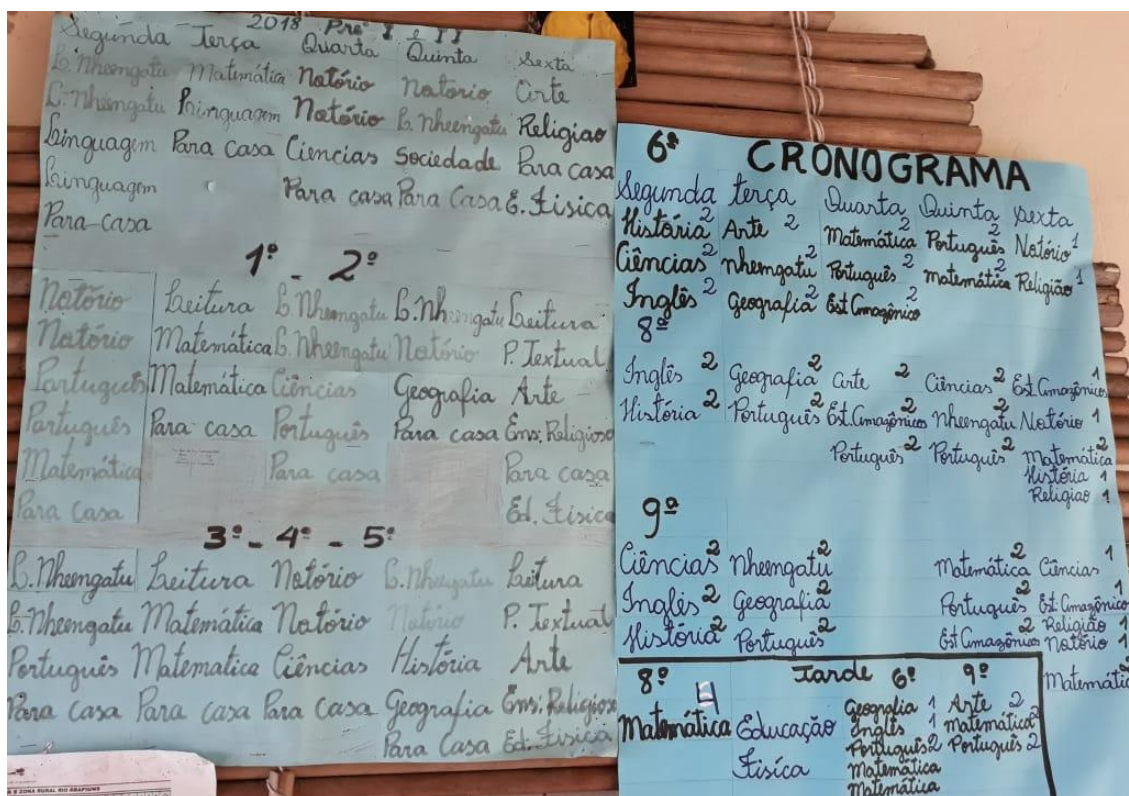 2018 Pré I e II
Segunda Terça Quarta Quinta Sexta
L. Nheengatu Matemática Notório Notorio Arte
L. Nheengatu Linguagem Notório L. Nheengatu Religiao
Linguagem Para casa Ciencias Sociedade Para casa
Linguagem Para casa Para Casa E. Fisica
Para casa
1º - 2º
Notório Leitura L. Nheengatu L. Nheengatu Leitura
Notório Matemática L. Nheengatu Notório P. Textual
Português Matemática Ciências Geografia Arte
Português Para casa Português Para casa Ens. Religioso
Matemática Para casa Para casa
Para Casa Ed. Fisica
3º - 4º - 5º
L. Nheengatu Leitura Notório L. Nheengatu Leitura
L. Nheengatu Matemática Notório Notório P. Textual
Português Matematica Ciências História Arte
Para casa Para casa Para Casa Geografia Ens. Religioso
Para Casa Ed. Fisica
A E ZONA RURAL RIO ARAPIUNS
6º CRONOGRAMA
Segunda terça Quarta Quinta Sexta
História 2 Arte 2 Matemática 2 Português 2 Notório 1
Ciências 2 nheengatu 2 Português 2 matemática 2 Religião 1
Inglês 2 Geografia 2 Est Amazônico 2
8º
Inglês 2 Geografia 2 Arte 2 Ciências 2 Est. Amazônicos 1
História 2 Português 2 Est. Amazônicos 2 Nheengatu 2 Notório 1
Português 2 Português 2 Matemática 2
História 1
Religiao 1
9º
Ciências 2 Nheengatu 2 Matemática 2 Ciências 1
Inglês 2 Geografia 2 Português 2 Est. Amazônico 1
História 2 Português 2 Est Amazônico 2 Religião 1
notório 1
Matemátic
8º 4 Tarde 6º 9º
Matemática Educação Geografia 1 Arte 2
Fisíca Inglês 1 matemática 2
Português 2 Português 2
Matemática
Matemática